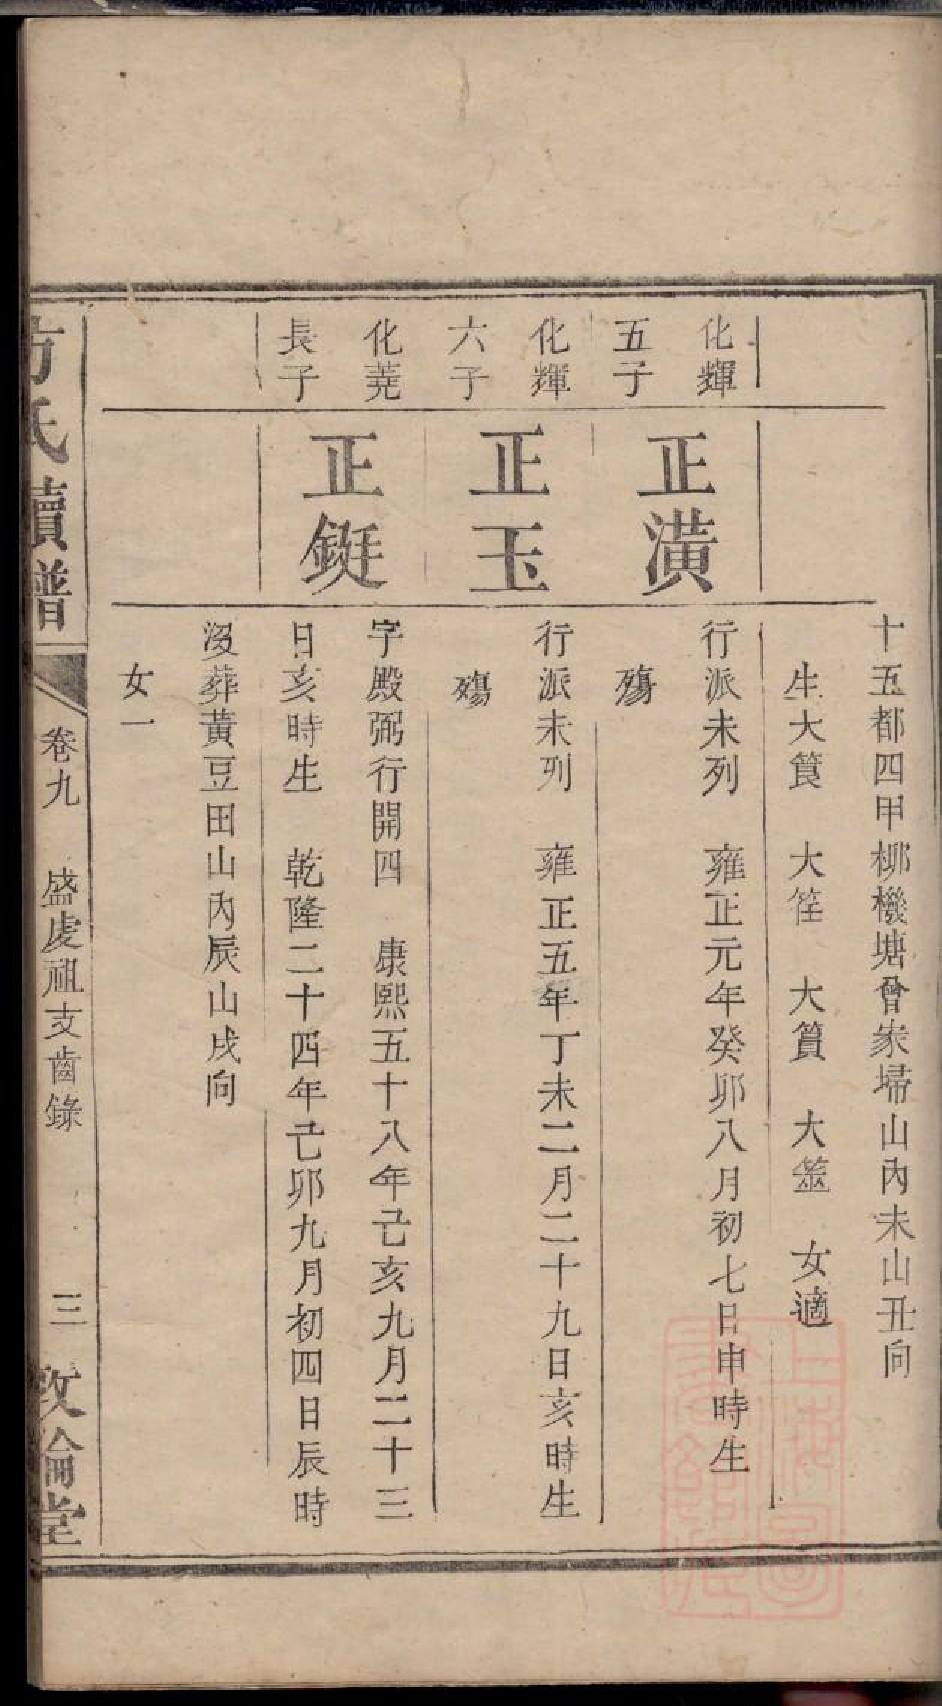 十五都四甲柳機塘曾家埽山內未山丑向
生大筤　大筌　大篔　大簭　女適
化輝
五子
正潢
行派未列　雍正元年癸卯八月初七日申時生
殤
化輝
六子
正玉
行派未列　雍正五年丁未二月二十九日亥時生
殤
化蕘
長子
正鋌
字殿弼行開四　康熙五十八年己亥九月二十三
日亥時生　乾隆二十四年己卯九月初四日辰時
沒葬黃豆田山內辰山戌向
女一
方氏續譜
卷九　盛虔祖支齒錄　三
敦倫堂